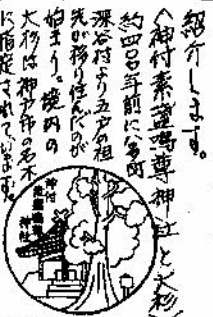 紹介します。
<神付素盞嗚尊神社と大杉>
約四百年前に
深谷村より五戸の祖
先が移り住んだのが
始まり。境内の
大杉は神戸市の名木
に指定されています。
神付
素盞嗚尊
神社